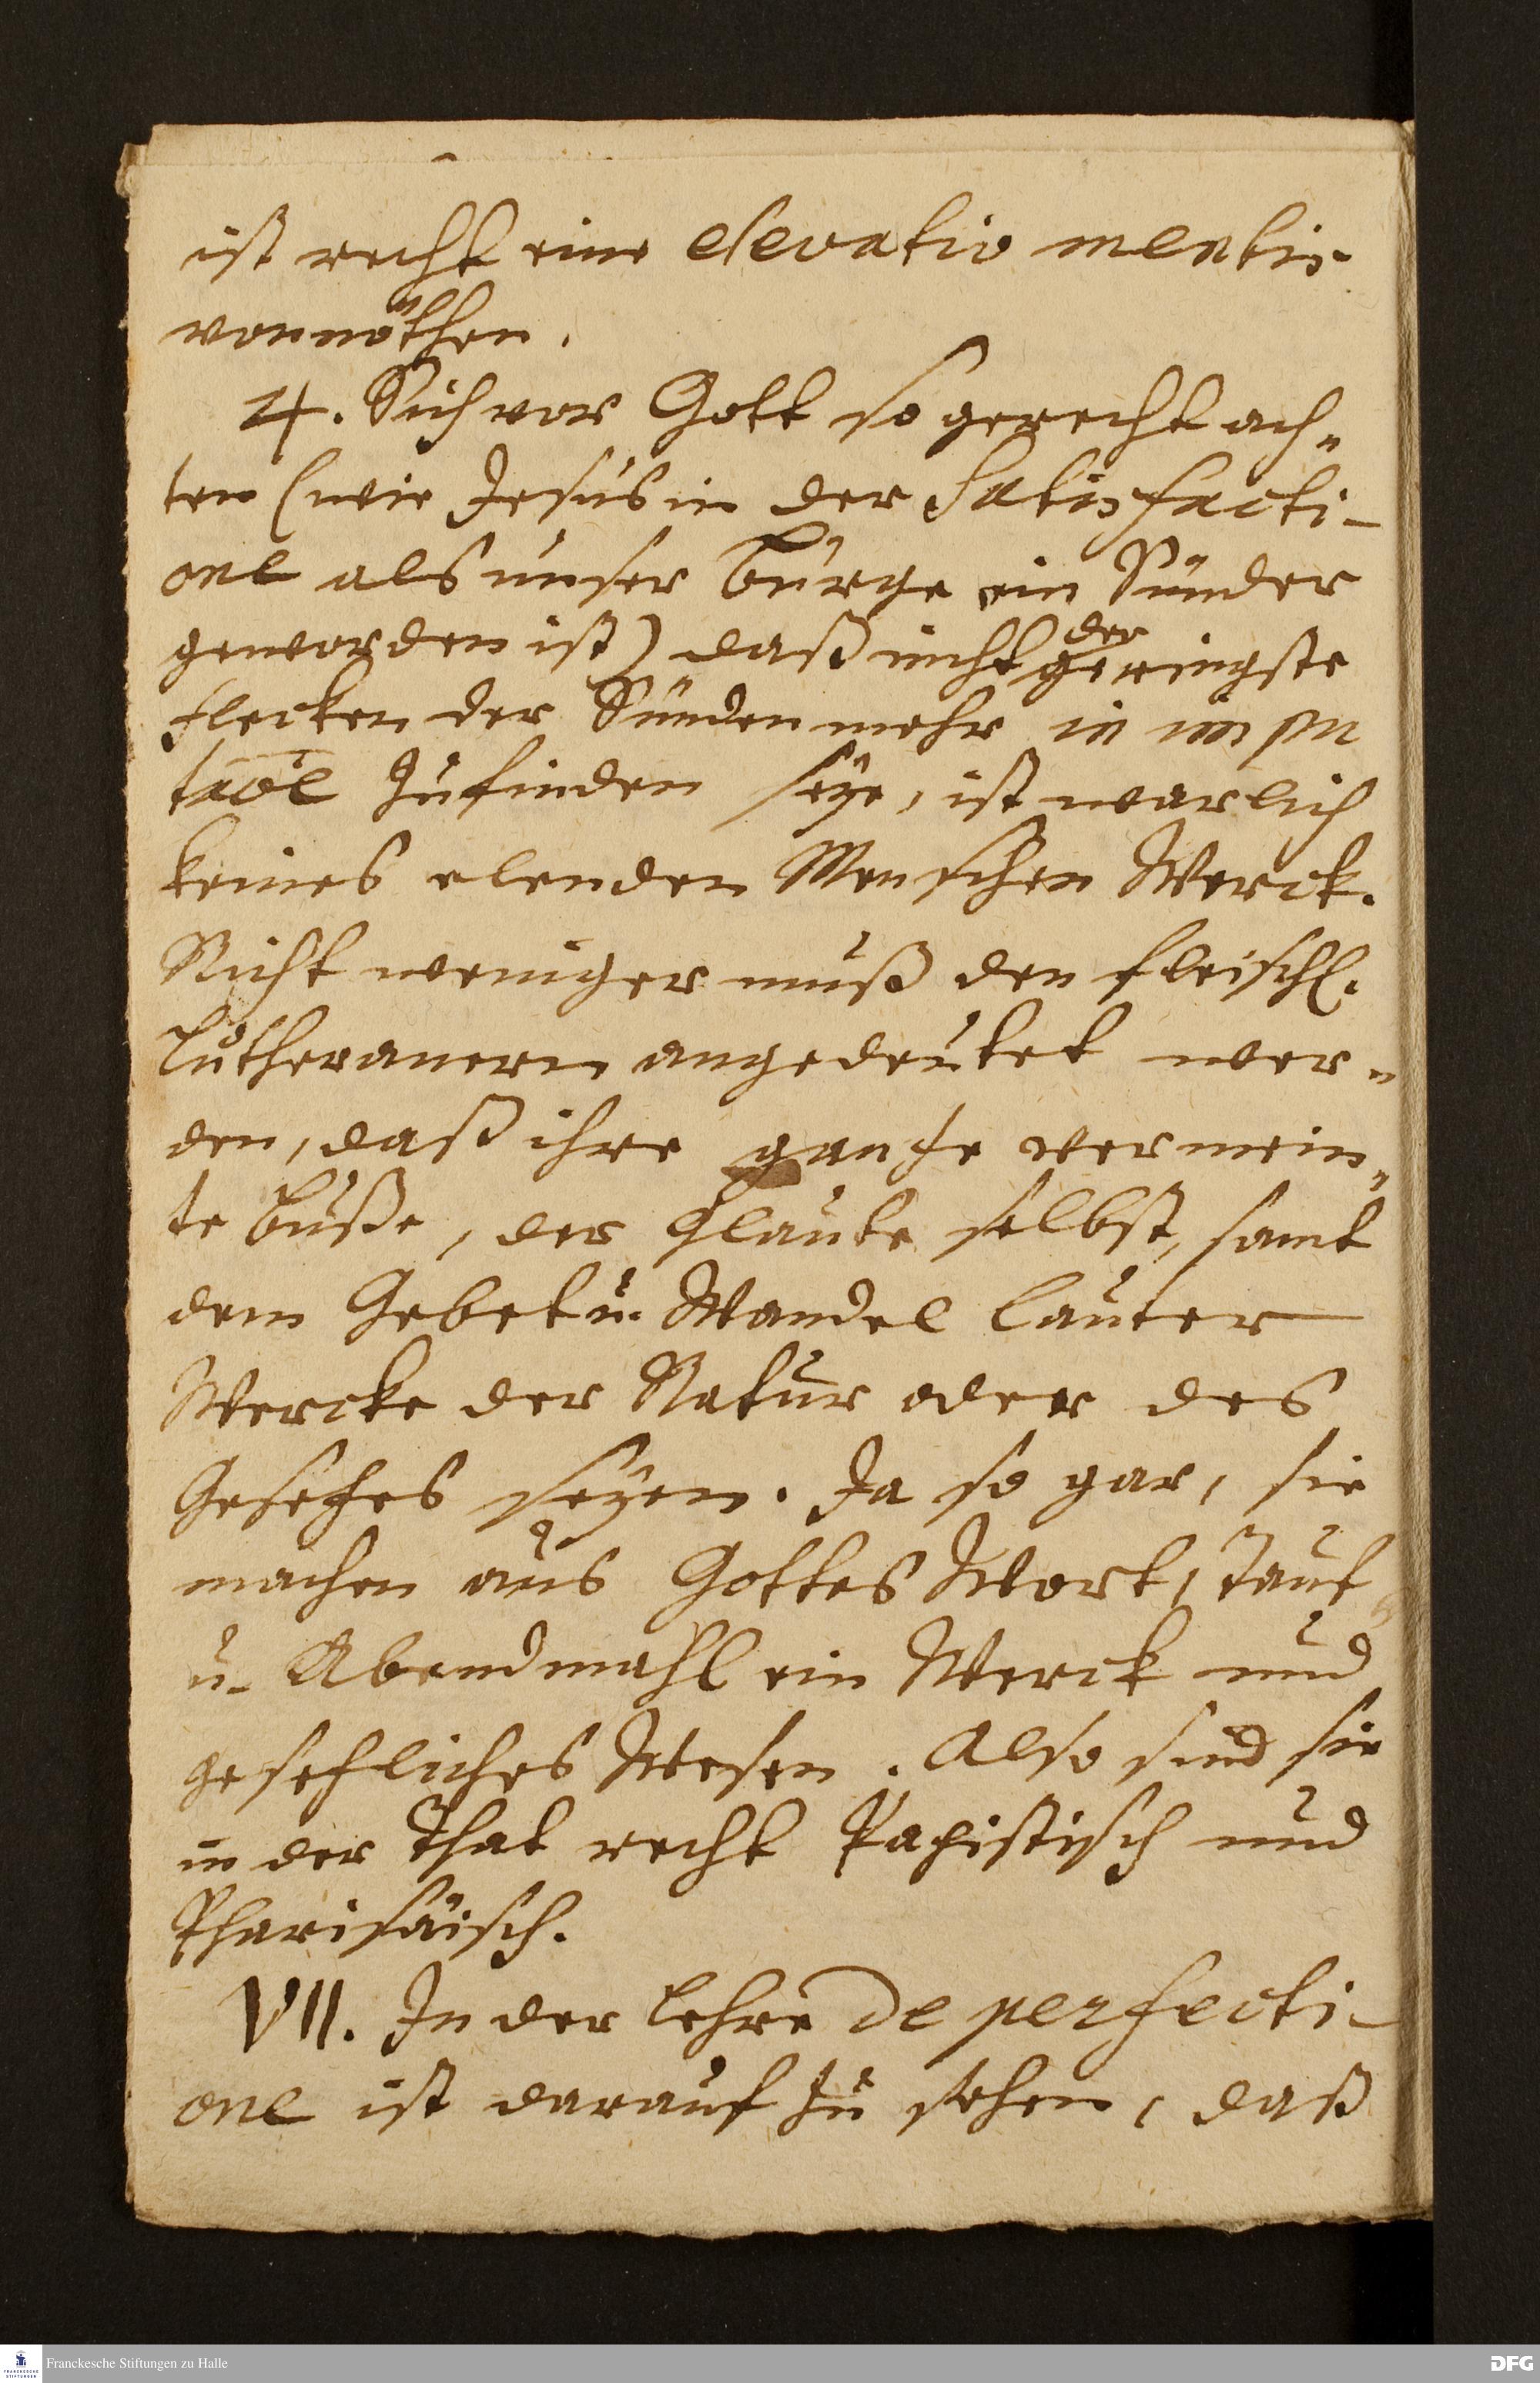 ist recht eine elevatio mentis
vonnöthen.
4. Sich vor Gott so gerecht ach„
ten (wie Jesus in der Satisfacti-
one als unser Bürge ein Sünder
geworden ist) daß nicht der geringste
flecken der Sünden mehr in
zufinden seÿe, ist warlich
keines elenden Menschen Werck.
Nicht weniger muß den fleischl.
Lutheranern angedeutet wer„
den, daß ihre gantze vermein„
te Buße, der Glaube selbst, samt
dem Gebet u. Wandel lauter
Wercke der Natur oder des
Gesetzes seÿen. Ja so gar, sie
machen aus Gottes Wort, Tauf
u. Abendmahl ein Werck und
gesetzliches Wesen. Also sind sie
in der That recht Papistisch und
Pharisäisch.
VII. In der Lehre de perfecti-
one ist darauf zu sehen, daß
Franckesche Stiftungen zu Halle
DFG